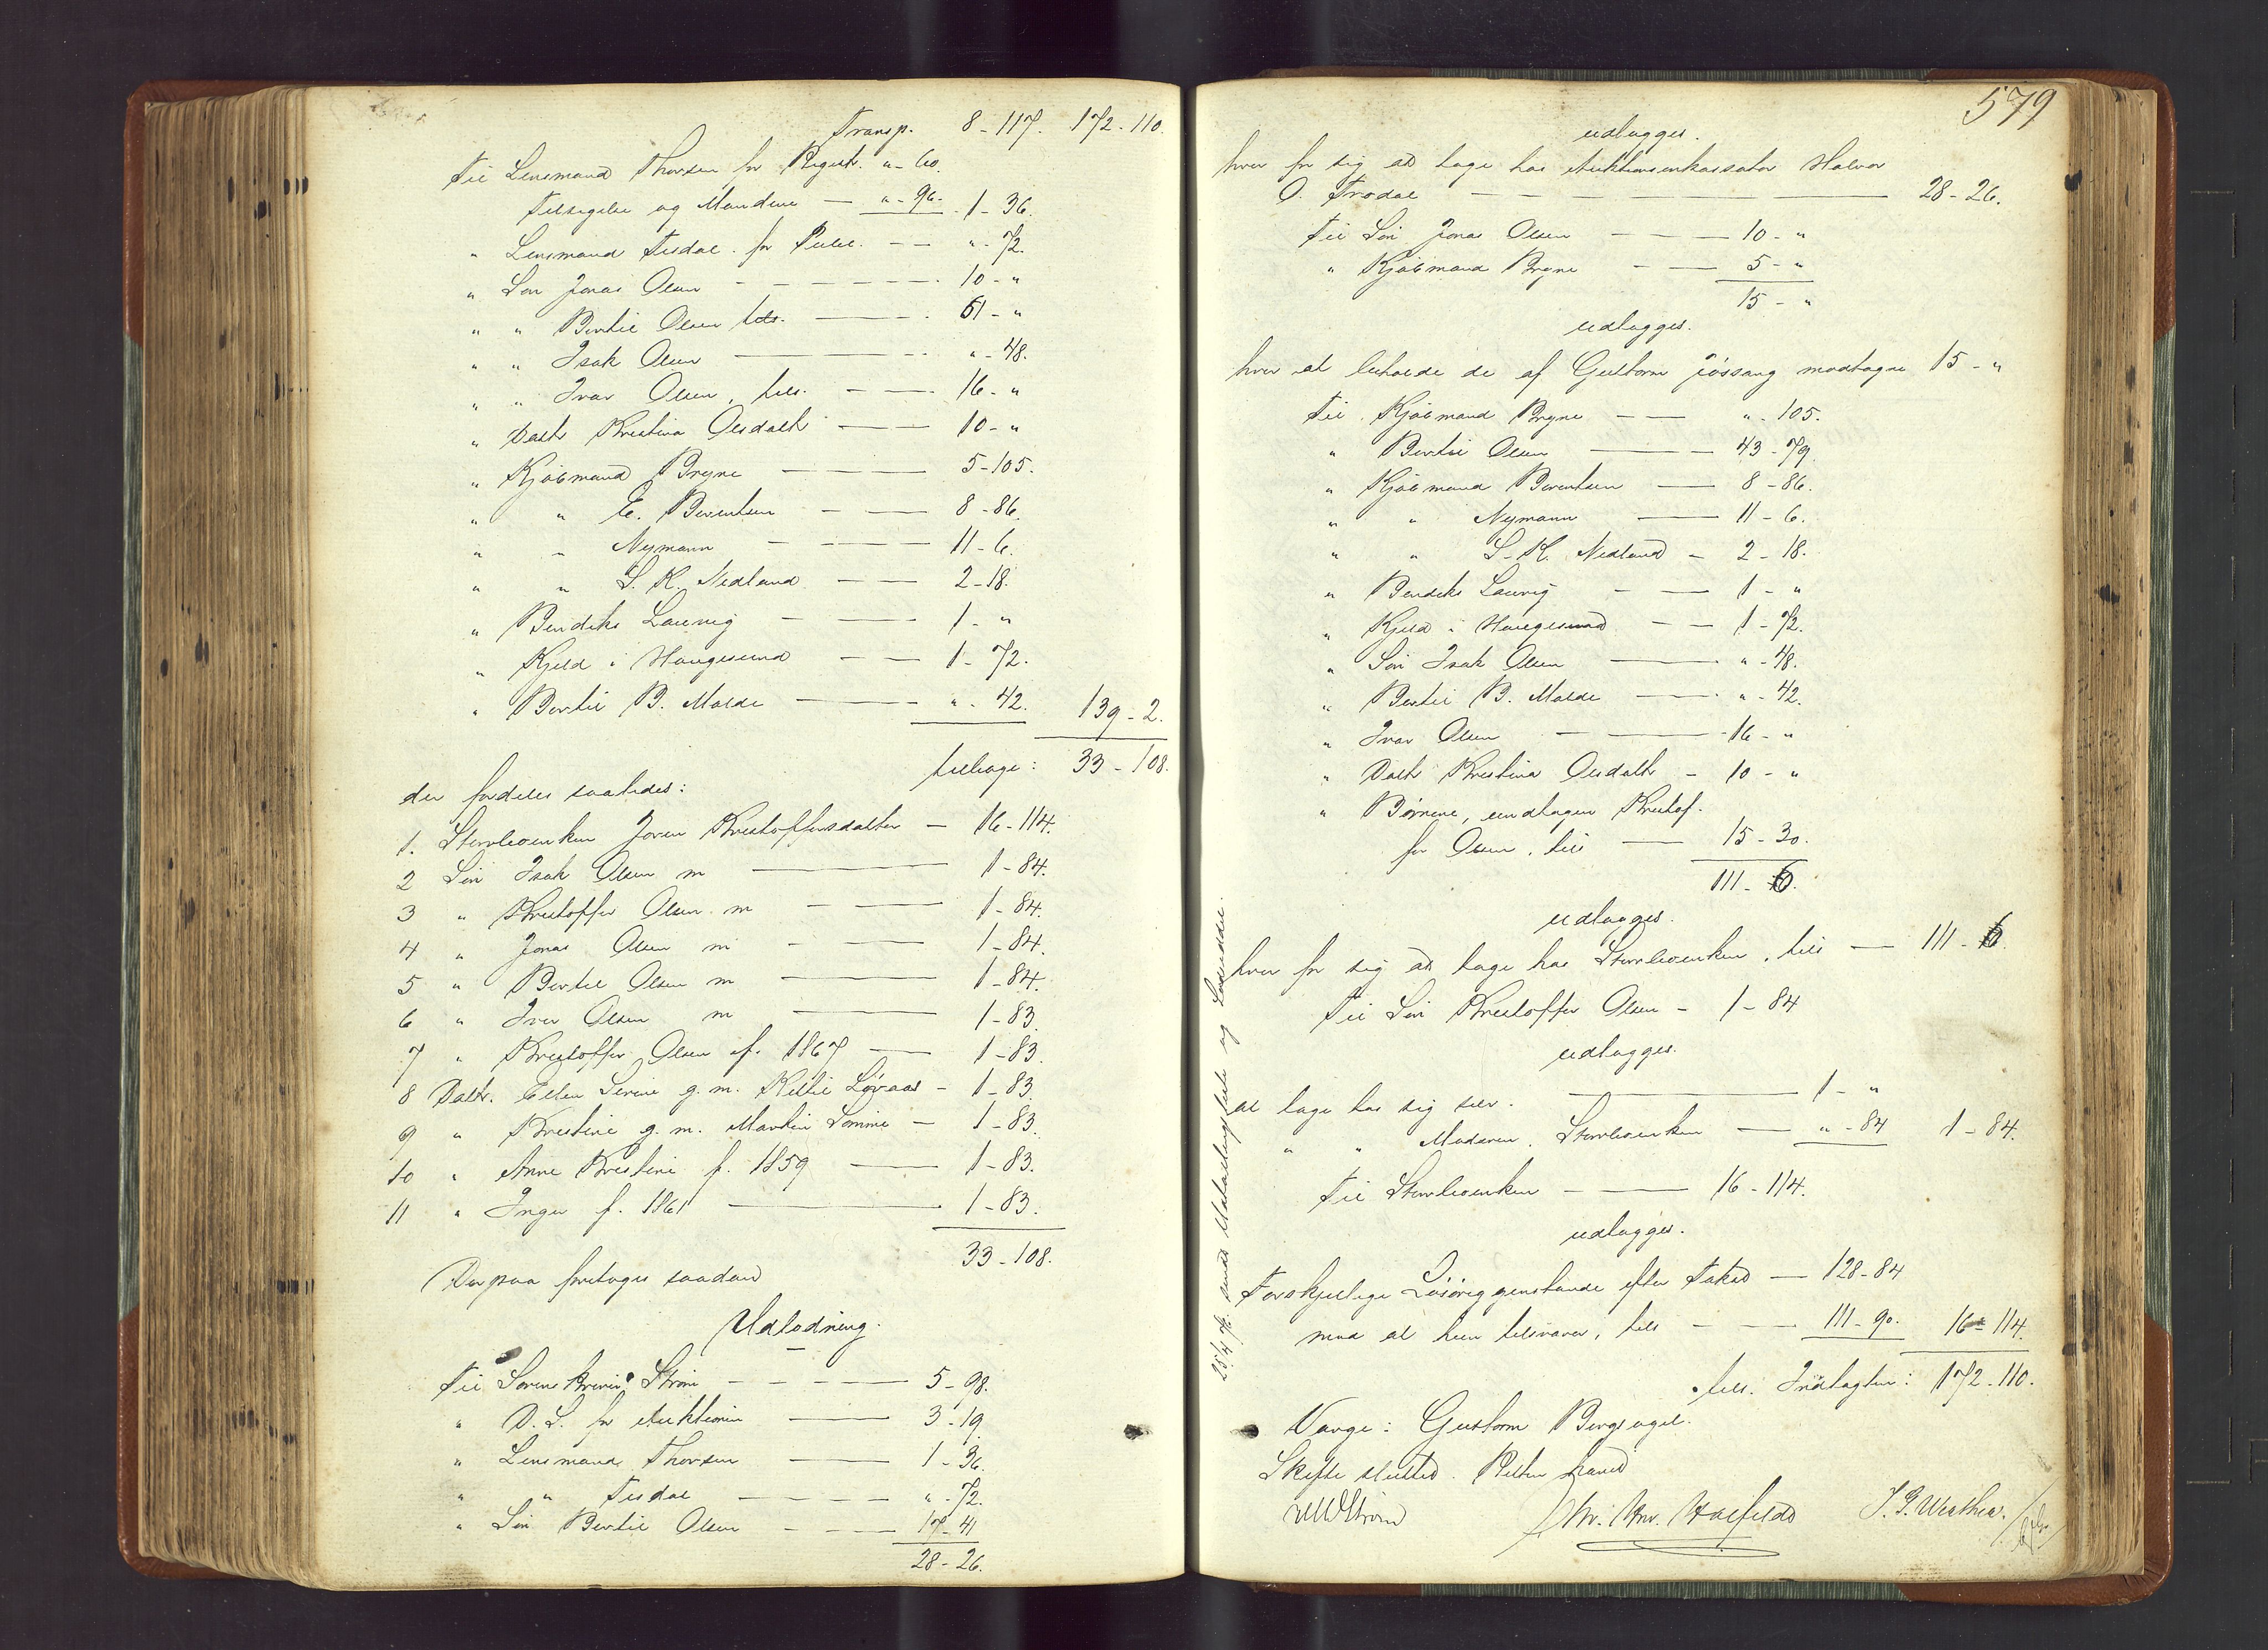 Transp. 8-117. 172-110.
Til Lensmand Thorsen for Registr. "-60.
Tilsigelse og Mændene — "-96. 1-36.
" Lensmand Tisdal for Publ. — "-72.
" Søn Jonas Olsen — 10-"
" " Bertil Olsen tils. — 61-"
" " Isak Olsen — "-48.
" " Ivar Olsen, tils. — 16-"
" Datt. Kristina Olsdatt. — 10-"
" Kjøbmand Bryne — 5-105.
" " E. Berentsen — 8-86.
" " Nymann — 11-6.
" " S. K. Nedland — 2-18.
" Bendiks Lauvig — 1-"
" Kjeld i Haugesund — 1-72.
" Bertil B. Molde — "-42. 139-2.
tilbage: 33-108.
der fordeles saaledes:
1. Sterboenken Joren Kristoffersdatter — 16-114.
2 Søn Isak Olsen m — 1-84.
3 " Kristoffer Olsen m — 1-84.
4 " Jonas Olsen m — 1-84.
5 " Bertil Olsen m — 1-84.
6 " Iver Olsen m — 1-83.
7 " Kristoffer Olsen f. 1867 — 1-83.
8 Datr. Ellen Serine g. m. Kittil Løvaas — 1-83.
9 " Kristine g. m. Martin Sømme — 1-83.
10 " Anne Kristine f. 1859 — 1-83.
11 " Inger f. 1861 — 1-83.
33-108.
Derpaa foretages saadan
Udlodning.
Til Sorenskriver Strøm — 5-98.
" D. S. for Auktionen — 3-19.
" Lensmand Thorsen — 1-36.
" " Tisdal — "-72.
" Søn Bertil Olsen — 17-41
28-26.
579
udlægges.
hver for sig at tage hos Auktionsinkassator Halvor
O. Trodal — 28-26.
Til Søn Jonas Olsen — 10-"
" Kjøbmand Bryne — 5-"
15-"
udlægges.
hver at beholde de af Guttorm Jøssang modtagne 15-"
Til Kjøbmand Bryne — "-105.
" Bertil Olsen — 43-79.
" Kjøbmand Berentsen — 8-86.
" " Nymann — 11-6.
" " S. K. Nedland — 2-18.
" Bendiks Lauvig — 1-"
" Kjeld i Haugesund — 1-72.
" Søn Isak Olsen — "-48.
" Bertil B. Molde — "-42.
" Ivar Olsen — 16-"
" Datt. Kristina Olsdatt. — 10-"
" Børnene, undtagen Kristof-
fer Olsen, tils — 15-30.
111-6.
udlægges.
hver for sig at tage hos Sterboenken, tils — 111-6.
Til Søn Kristoffer Olsen — 1-84
udlægges.
at tage hos sig selv. — 1-"
" " Moderen, Sterboenken — "-84 1-84.
Til Sterboenken — 16-114.
udlægges.
Forskjellige Løsøregjenstande efter Takst — 128-84
mod at hun tilsvarer, tils — 111-90. 16-114.
tils. Indtægten: 172-110.
Værge: Guttorm Bergsagel.
Skiftet sluttet. Retten hævet
Strøm Chr. Hnr. Halfeld J. G. Westher.